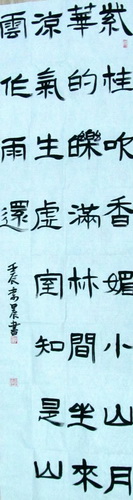 紫桂吹香媚小山月
華的皪滿林間坐來
涼氣生虛室知是山
雲作雨還
壬辰 書